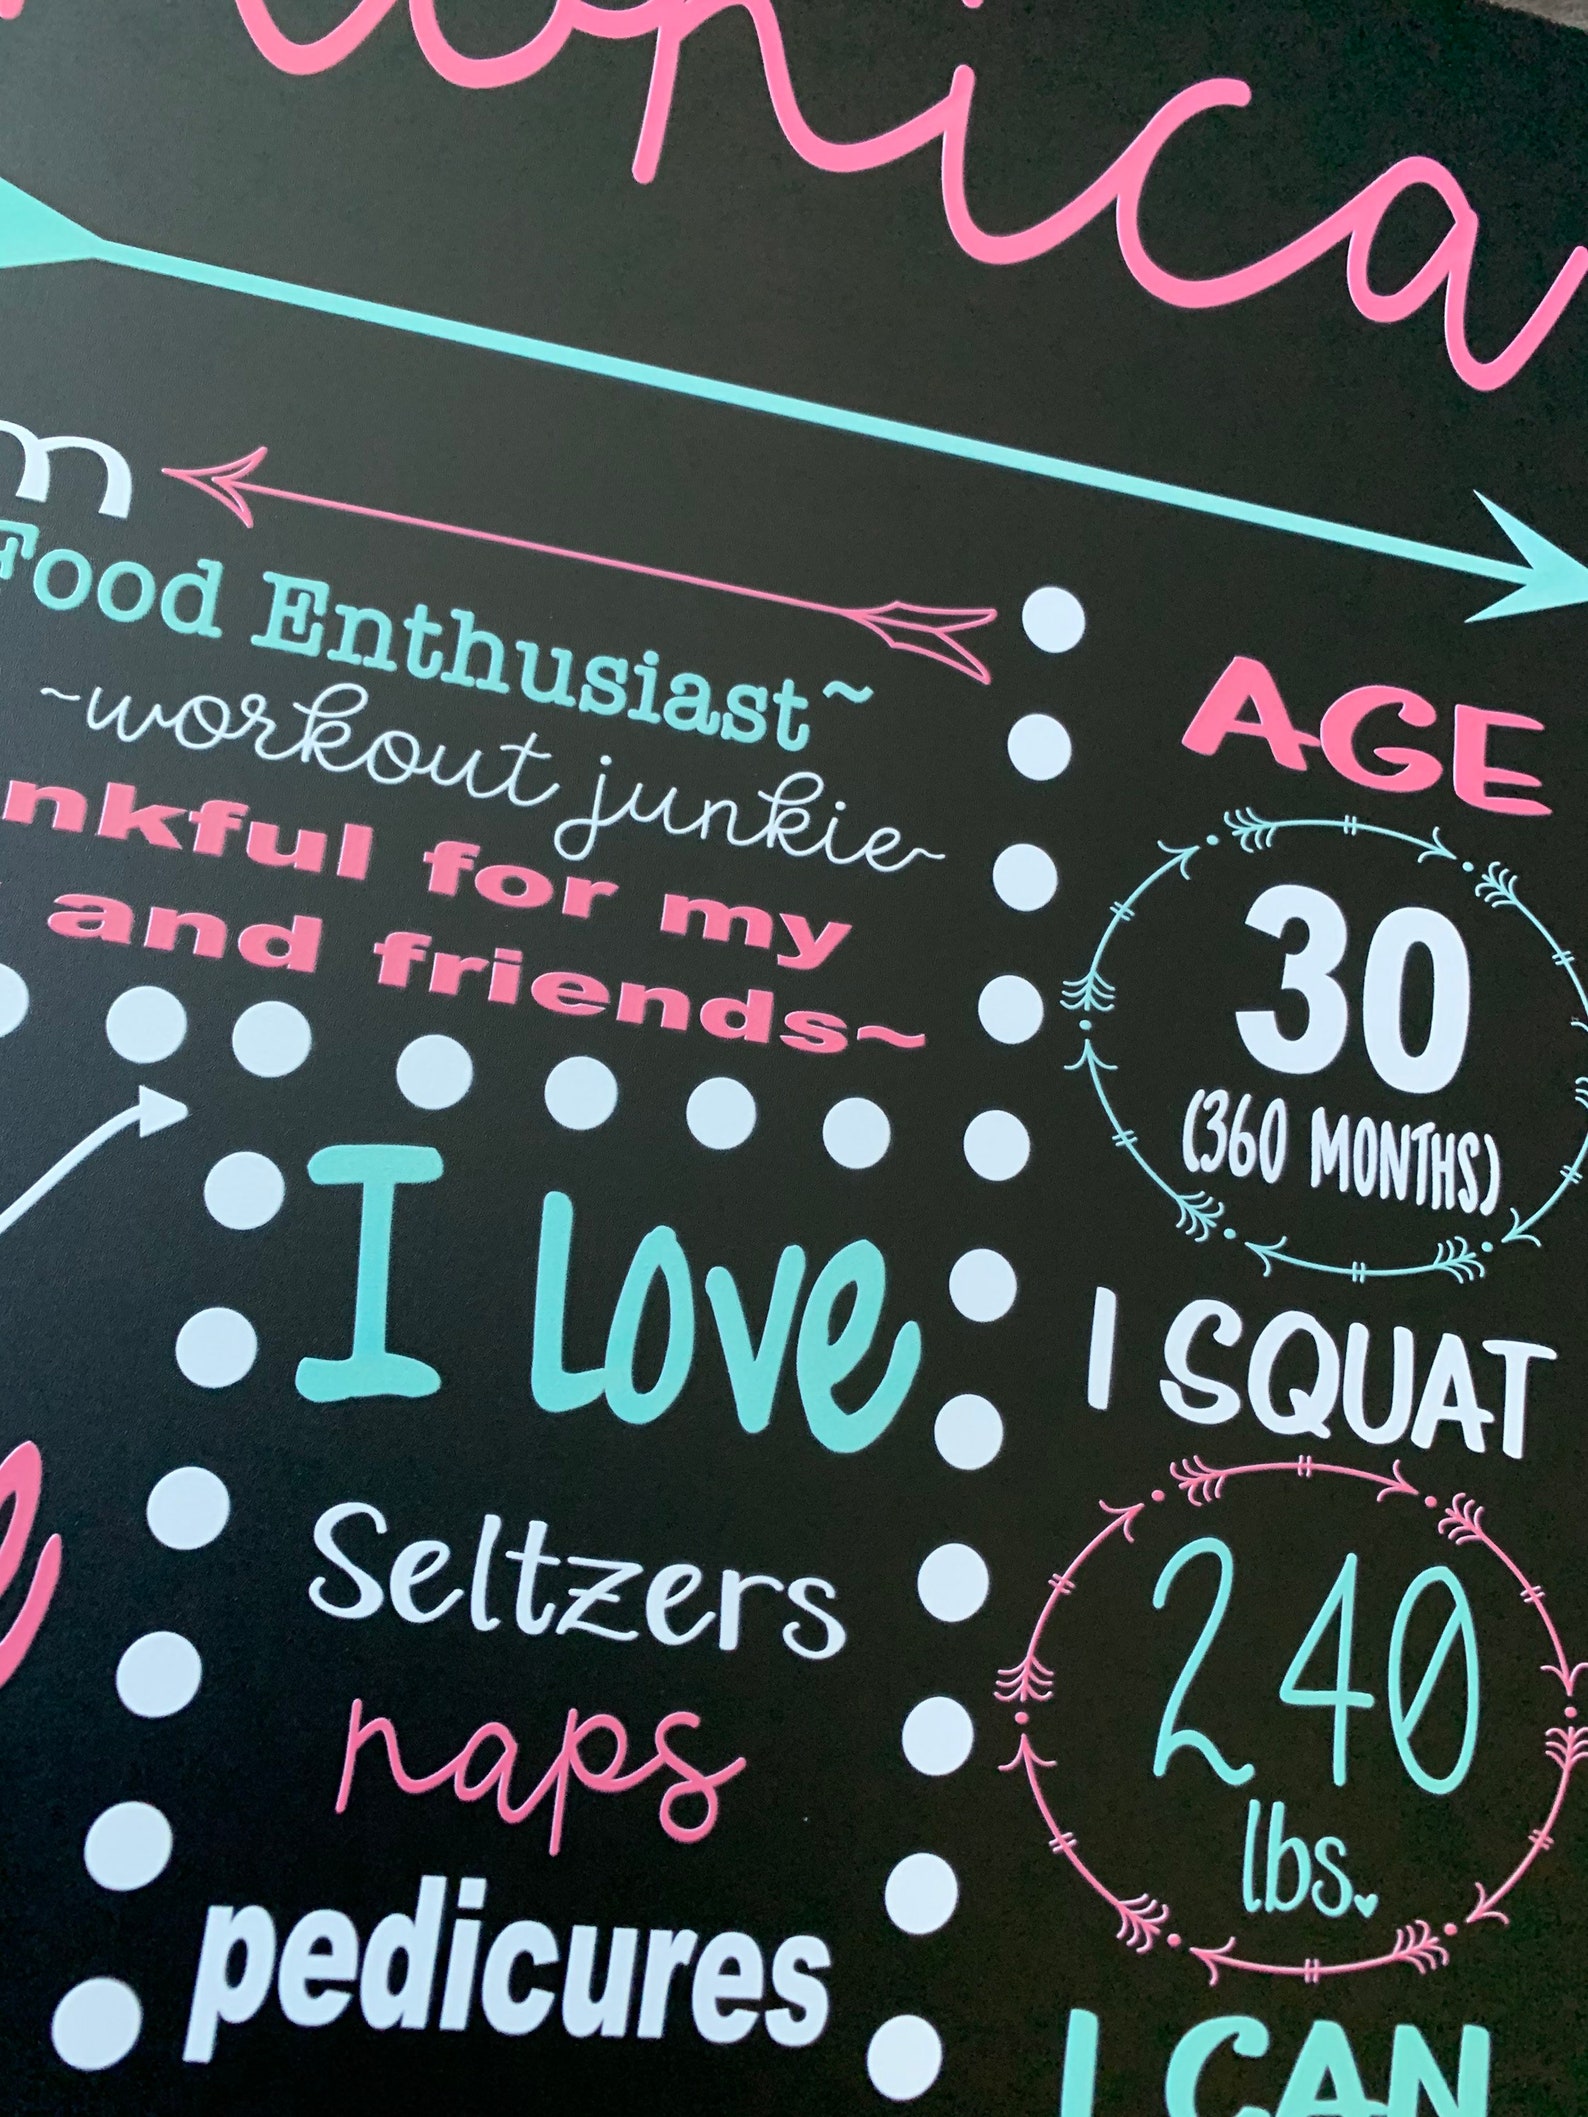 Food Enthusiast~
~workout junkie~
for my
and friends~
AGE
30
(360 MONTHS)
I Love
Seltzers
naps
pedicures
I SQUAT
240
lbs.
I CAN